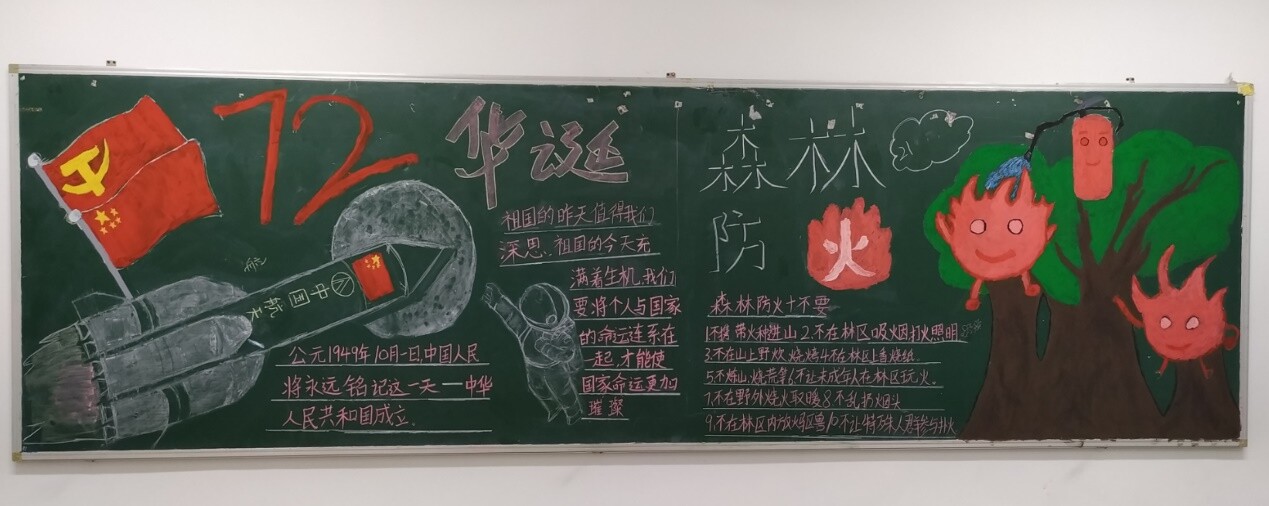 72
华诞
中国航天
公元1949年10月一日中国人民
将永远铭记这一天一中华
人民共和国成立.
祖国的昨天值得我们
深思.祖国的今天充
满着生机,我们
要将个人与国家
的命运连系在
一起,才能使
国家命运更加
璀璨
森林
防火
森林防火十不要
1不携带火种进山 2.不在林区吸烟打火照明
3.不在山上野炊.烧烤4.不在林区上香烧纸.
5.不炼山.烧荒等6不让未成年人在林区玩火.
7.不在野外烧火取暖8.不乱扔烟头
9.不在林区内放火驱兽10.不让特殊人群参与扑火